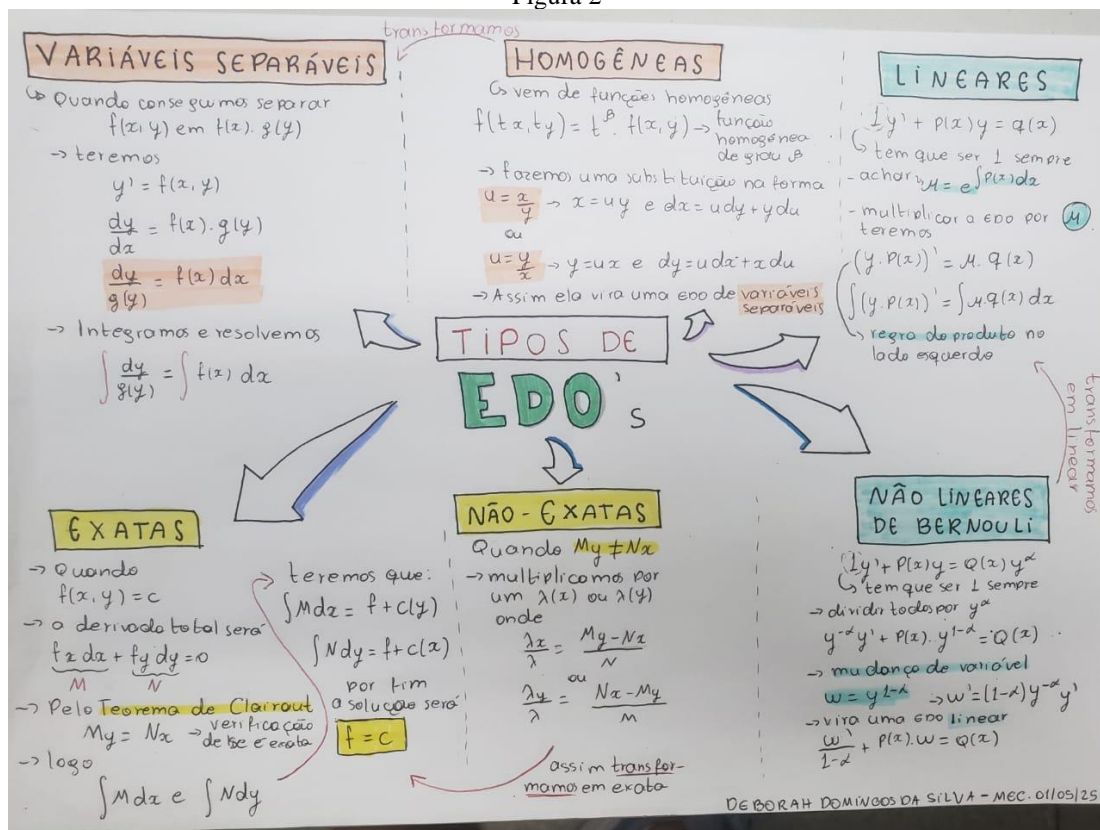 Figura 2
transformamos
VARIÁVEIS SEPARÁVEIS
↳ Quando conseguimos separar
f(x,y) em f(x). g(y)
→ teremos
y' = f(x,y)
dy/dx = f(x). g(y)
dy/g(y) = f(x) dx
→ Integramos e resolvemos
∫ dy/g(y) = ∫ f(x) dx
HOMOGÊNEAS
↳ vem de funções homogêneas
f(tx,ty) = t^β. f(x,y) → função
homogênea
de grau β
→ fazemos uma substituição na forma
u = x/y → x = uy e dx = udy + ydu
ou
u = y/x → y = ux e dy = udx + xdu
→ Assim ela vira uma EDO de variáveis
separáveis
LINEARES
1y' + P(x)y = q(x)
↳ tem que ser 1 sempre
- achar μ = e^∫P(x)dx
- multiplicar a EDO por μ
teremos
(y.P(x))' = μ. q(x)
∫(y.P(x))' = ∫μ.q(x) dx
↳ regra do produto no
lado esquerdo
transformamos
em linear
TIPOS DE
EDO's
EXATAS
→ Quando
f(x,y) = c
→ a derivada total será
fx dx + fy dy = 0
M N
→ Pelo Teorema de Clairout
My = Nx → verificação
de se é exata
→ logo
∫Mdx e ∫Ndy
teremos que:
∫Mdx = f + c(y)
∫Ndy = f + c(x)
por fim
a solução será
f = c
NÃO-EXATAS
Quando My ≠ Nx
→ multiplicamos por
um λ(x) ou λ(y)
onde
λx/λ = My-Nx/N
ou
λy/λ = Nx-My/M
assim transfor-
mamos em exata
NÃO LINEARES
DE BERNOULI
1y' + P(x)y = Q(x)y^α
↳ tem que ser 1 sempre
→ dividir todos por y^α
y^-α y' + P(x). y^1-α = Q(x)
→ mudança de variável
w = y^1-α → w' = (1-α)y^-α y'
→ vira uma EDO linear
w'/1-α + P(x).w = Q(x)
DEBORAH DOMINGOS DA SILVA - MEC. 01/05/25